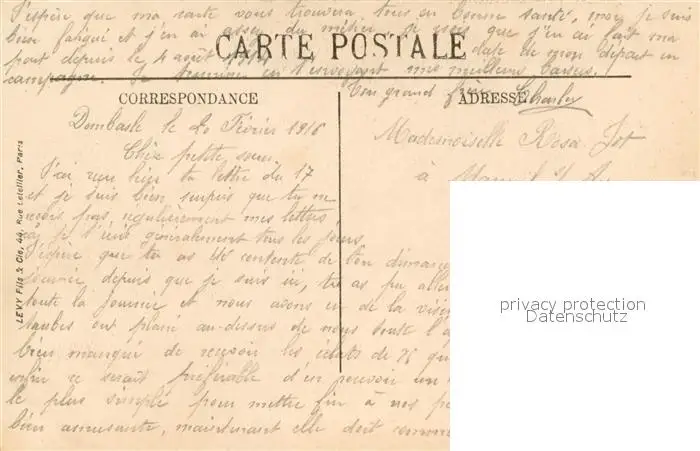 J'espère que ma carte vous trouvera tous en bonne santé, moi je suis
bien fatigué et j'en ai assez du métier je que j'en ai fait ma
part depuis le 4 août date de mon départ en
campagne. Je termine en t'envoyant mes meilleurs baisers.
CARTE POSTALE
Ton grand frère Charles
CORRESPONDANCE
ADRESSE
Dombasle le 20 Février 1916
Mademoiselle Rosa
Chère petite sœur
à
J'ai reçu hier ta lettre du 17
et je suis bien surpris que tu ne
reçois pas régulièrement mes lettres
je t'écris généralement tous les jours
J'espère que tu as été contente de ton dimanc
depuis que je suis ici, tu as pu aller
toute la journée et nous avons eu de la visi
taubes ont plané au-dessus de nous dont l'a
bien manqué de recevoir les éclats de 75 qu
enfin ce serait préférable d'en pouvoir un
le plus simple pour mettre fin à nos p
bien amusante, maintenant elle doit comm
LEVY Fils & Cie, 44, Rue Letellier, Paris
privacy protection
Datenschutz